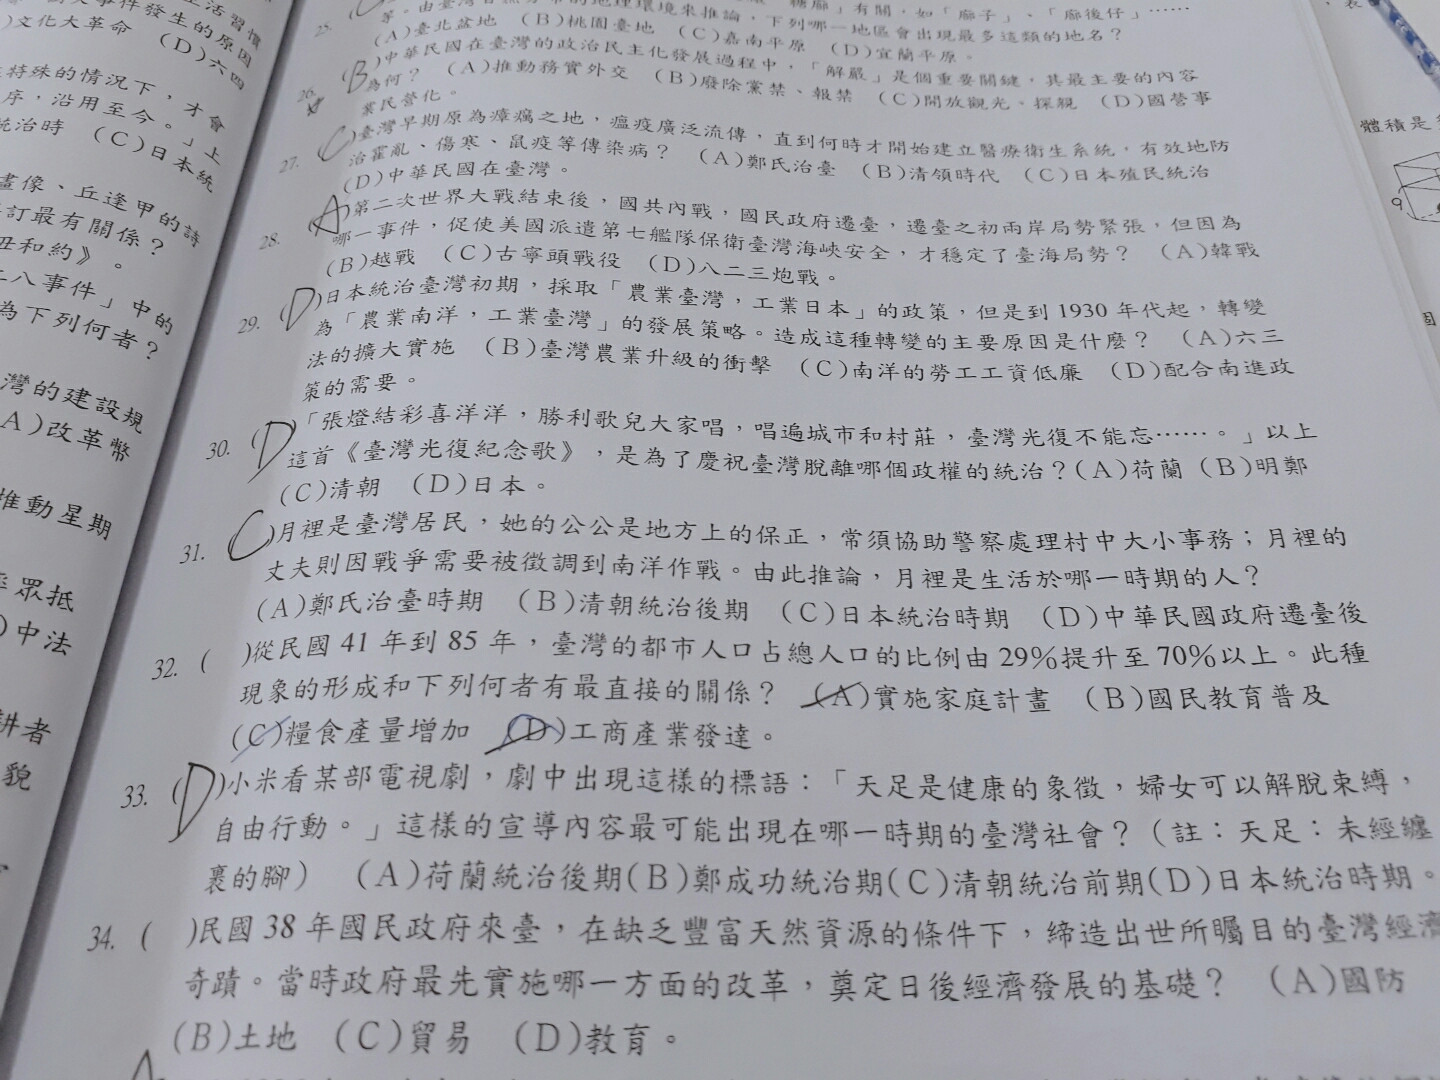 活習慣
事件發生的原因
)文化大革命 (D)六四
特殊的情況下，才會
序，沿用至今。」上
統治時 (C)日本統
畫像、丘逢甲的詩
訂最有關係？
丑和約》。
二八事件」中的
為下列何者？
灣的建設規
A)改革幣
推動星期
眾抵
)中法
耕者
貌
25. (C
等。由臺灣
糖廍」有關，如「廍子」、「廍後仔」……
的地理環境來推論，下列哪一地區會出現最多這類的地名？
(A)臺北盆地 (B)桃園臺地 (C)嘉南平原 (D)宜蘭平原。
26. (B)中華民國在臺灣的政治民主化發展過程中，「解嚴」是個重要關鍵，其最主要的內容
為何？ (A)推動務實外交 (B)廢除黨禁、報禁 (C)開放觀光。探親 (D)國營事
業民營化。
27. (C)臺灣早期原為瘴癘之地，瘟疫廣泛流傳，直到何時才開始建立醫療衛生系統，有效地防
治霍亂、傷寒、鼠疫等傳染病？ (A)鄭氏治臺 (B)清領時代 (C)日本殖民統治
(D)中華民國在臺灣。
28. (A)第二次世界大戰結束後，國共內戰，國民政府遷臺，遷臺之初兩岸局勢緊張，但因為
哪一事件，促使美國派遣第七艦隊保衛臺灣海峽安全，才穩定了臺海局勢？ (A)韓戰
(B)越戰 (C)古寧頭戰役 (D)八二三炮戰。
29. (D)日本統治臺灣初期，採取「農業臺灣，工業日本」的政策，但是到1930年代起，轉變
為「農業南洋，工業臺灣」的發展策略。造成這種轉變的主要原因是什麼？ (A)六三
法的擴大實施 (B)臺灣農業升級的衝擊 (C)南洋的勞工工資低廉 (D)配合南進政
策的需要。
30. (D)「張燈結彩喜洋洋，勝利歌兒大家唱，唱遍城市和村莊，臺灣光復不能忘……。」以上
這首《臺灣光復紀念歌》，是為了慶祝臺灣脫離哪個政權的統治？(A)荷蘭 (B)明鄭
(C)清朝 (D)日本。
31. (C)月裡是臺灣居民，她的公公是地方上的保正，常須協助警察處理村中大小事務；月裡的
丈夫則因戰爭需要被徵調到南洋作戰。由此推論，月裡是生活於哪一時期的人？
(A)鄭氏治臺時期 (B)清朝統治後期 (C)日本統治時期 (D)中華民國政府遷臺後
32. ( )從民國41年到85年，臺灣的都市人口占總人口的比例由29%提升至70%以上。此種
現象的形成和下列何者有最直接的關係？ (A)實施家庭計畫 (B)國民教育普及
(C)糧食產量增加 (D)工商產業發達。
33. (D)小米看某部電視劇，劇中出現這樣的標語：「天足是健康的象徵，婦女可以解脫束縛，
自由行動。」這樣的宣導內容最可能出現在哪一時期的臺灣社會？（註：天足：未經纏
裹的腳） (A)荷蘭統治後期(B)鄭成功統治期(C)清朝統治前期(D)日本統治時期。
34. ( )民國38年國民政府來臺，在缺乏豐富天然資源的條件下，締造出世所矚目的臺灣經濟
奇蹟。當時政府最先實施哪一方面的改革，奠定日後經濟發展的基礎？ (A)國防
(B)土地 (C)貿易 (D)教育。
體積是
9